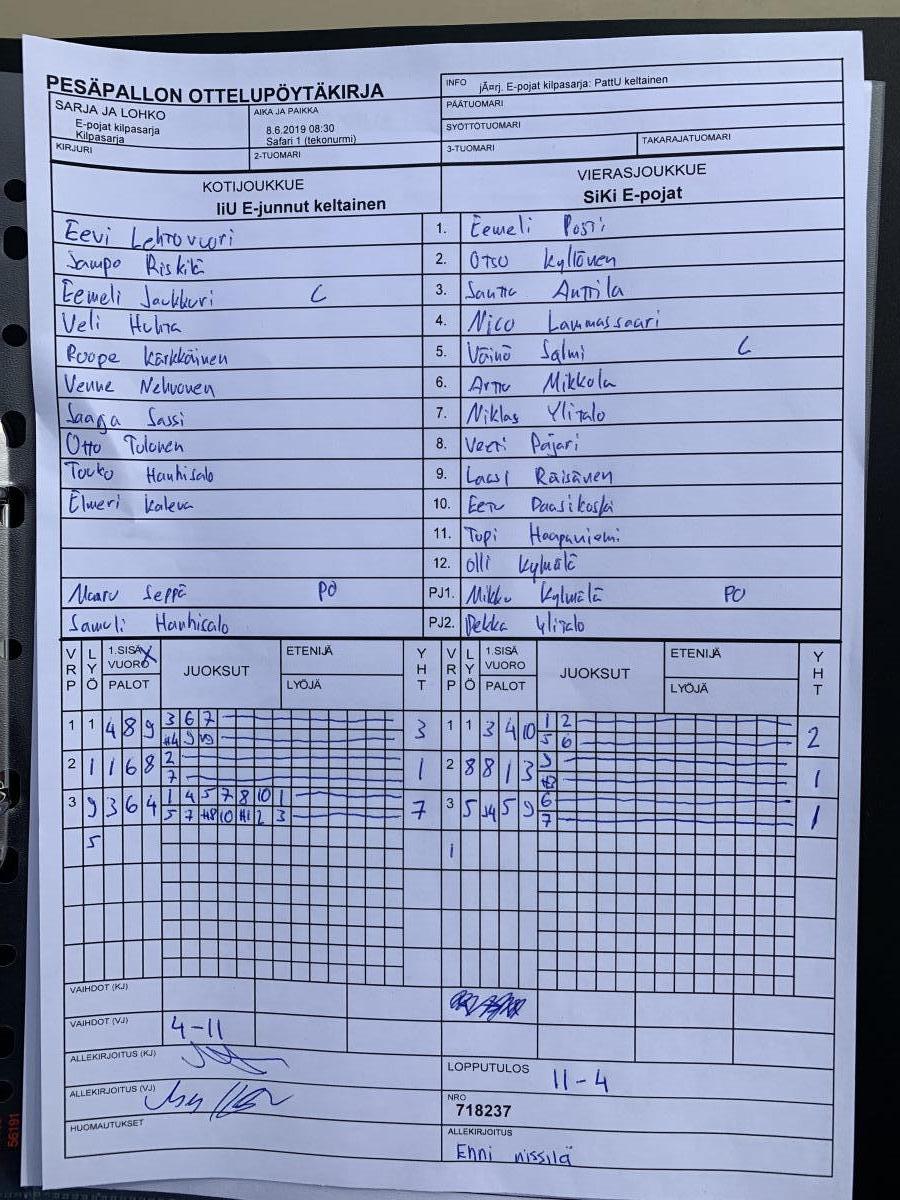 PESÄPALLON OTTELUPÖYTÄKIRJA
INFO jÃ¤rj. E-pojat kilpasarja: PattU keltainen
SARJA JA LOHKO
E-pojat kilpasarja
Kilpasarja
AIKA JA PAIKKA
8.6.2019 08:30
Safari 1 (tekonurmi)
PÄÄTUOMARI
SYÖTTÖTUOMARI
KIRJURI
2-TUOMARI
3-TUOMARI
TAKARAJATUOMARI
KOTIJOUKKUE
IiU E-junnut keltainen
VIERASJOUKKUE
SiKi E-pojat
Eevi Lehtovuori 1. Eemeli Posti
Sampo Riskilä 2. Otso Kyllönen
Eemeli Jaukkuri C 3. Santtu Anttila
Veli Huhta 4. Nico Lammassaari
Roope Kärkkäinen 5. Väinö Salmi C
Venne Nehvonen 6. Arttu Mikkola
Saaga Sassi 7. Niklas Ylitalo
Otto Tolonen 8. Veeti Pajari
Touko Hanhisalo 9. Lassi Räisänen
Elmeri Kaleva 10. Eetu Paasikoski
11. Topi Haapaniemi
12. Olli Kylmälä
Maaru Seppä PO PJ1. Mikko Kylmälä PO
Samuli Hanhisalo PJ2. Pekka Ylitalo
VRP LYÖ 1.SISÄ X VUORO PALOT JUOKSUT ETENIJÄ LYÖJÄ YHT
VRP LYÖ 1.SISÄ VUORO PALOT JUOKSUT ETENIJÄ LYÖJÄ YHT
1 1 4 8 9 3 6 7 3 1 1 3 4 10 1 2 2
5 6
2 1 1 6 8 2 1 2 8 8 1 3 9 1
7
3 9 3 6 4 1 4 5 7 8 10 1 7 3 5 5 9 6 1
5 7 10 2 3 7
5 1
VAIHDOT (KJ)
VAIHDOT (VJ) 4-11
ALLEKIRJOITUS (KJ)
LOPPUTULOS 11-4
ALLEKIRJOITUS (VJ)
NRO
718237
HUOMAUTUKSET
ALLEKIRJOITUS
Enni nissilä
56191